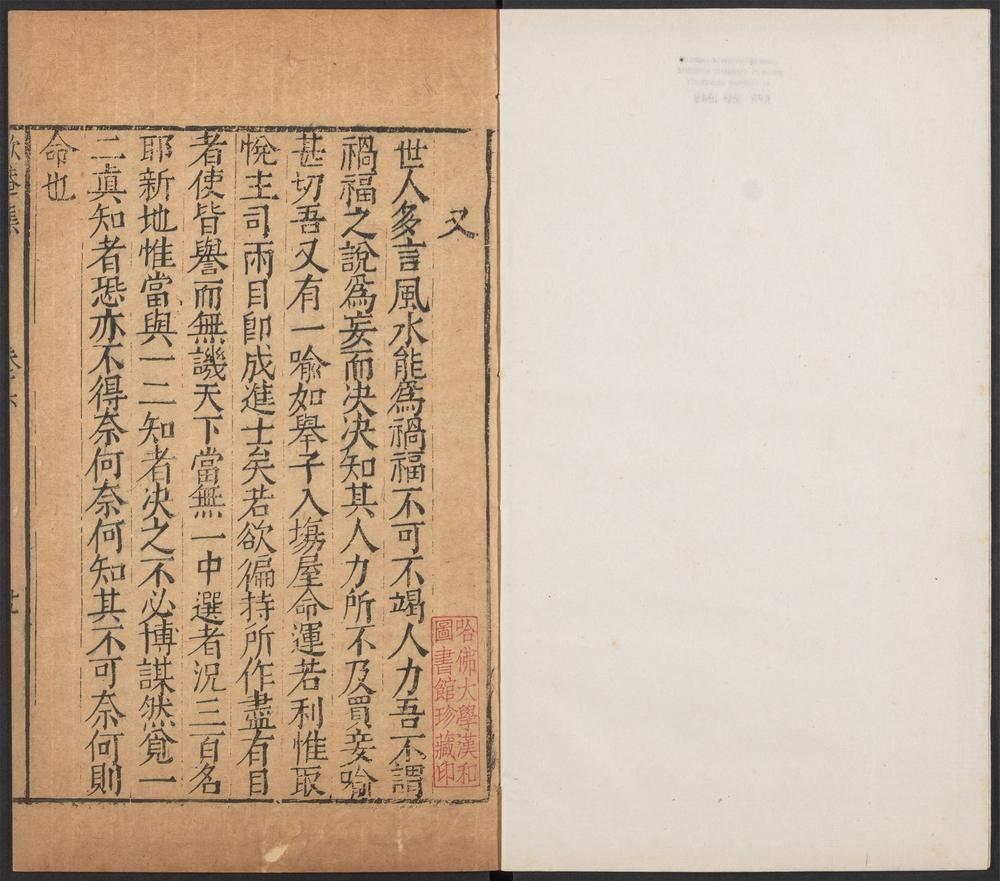 又
世人多言風水能爲禍福不可不竭人力吾不謂
禍福之說爲妄而决决知其人力所不及買妾喻
甚切吾又有一喻如舉子入塲屋命運若利惟取
悅主司兩目卽成進士矣若欲徧持所作盡有目
者使皆譽而無譏天下當無一中選者况三百名
耶新地惟當與一二知者决之不必博謀然覓一
二真知者恐亦不得奈何奈何知其不可奈何則
命也
哈佛大學漢和
圖書館珍藏印